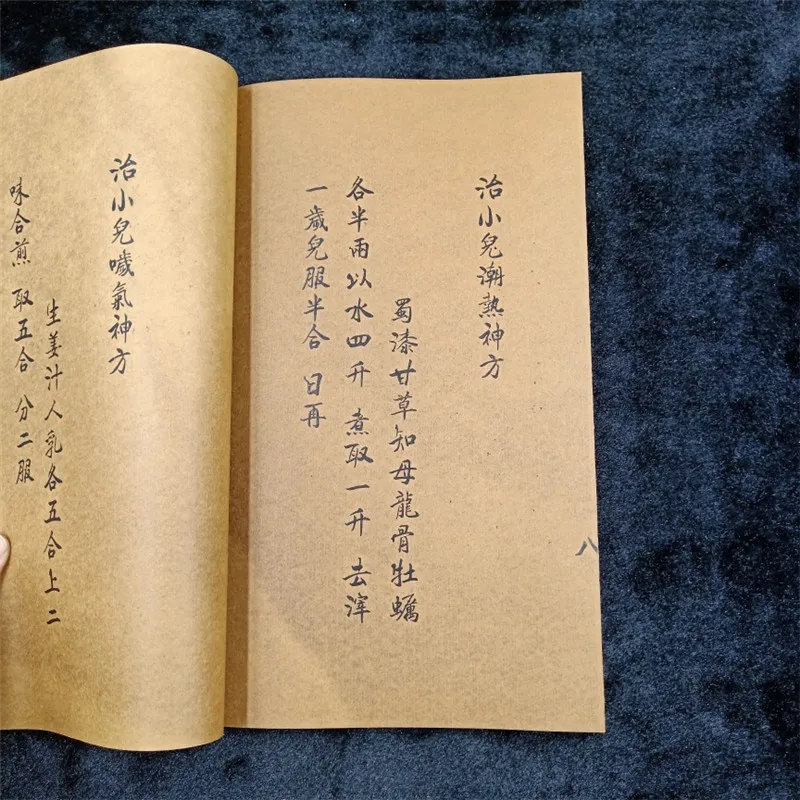 治小兒潮熱神方
蜀漆甘草知母龍骨牡蠣
各半雨以水四升 煮取一升 去滓
一歲兒服半合 日再
八
治小兒噦氣神方
生姜汁人乳各五合上二
味合煎 取五合 分二服